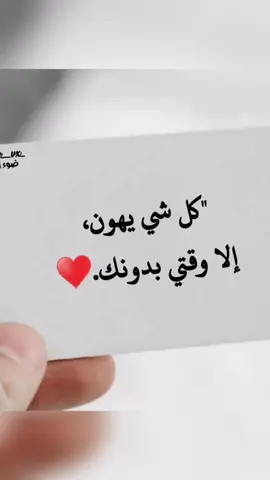 ضوء
"كل شي يهون،
إلا وقتي بدونك.♥️